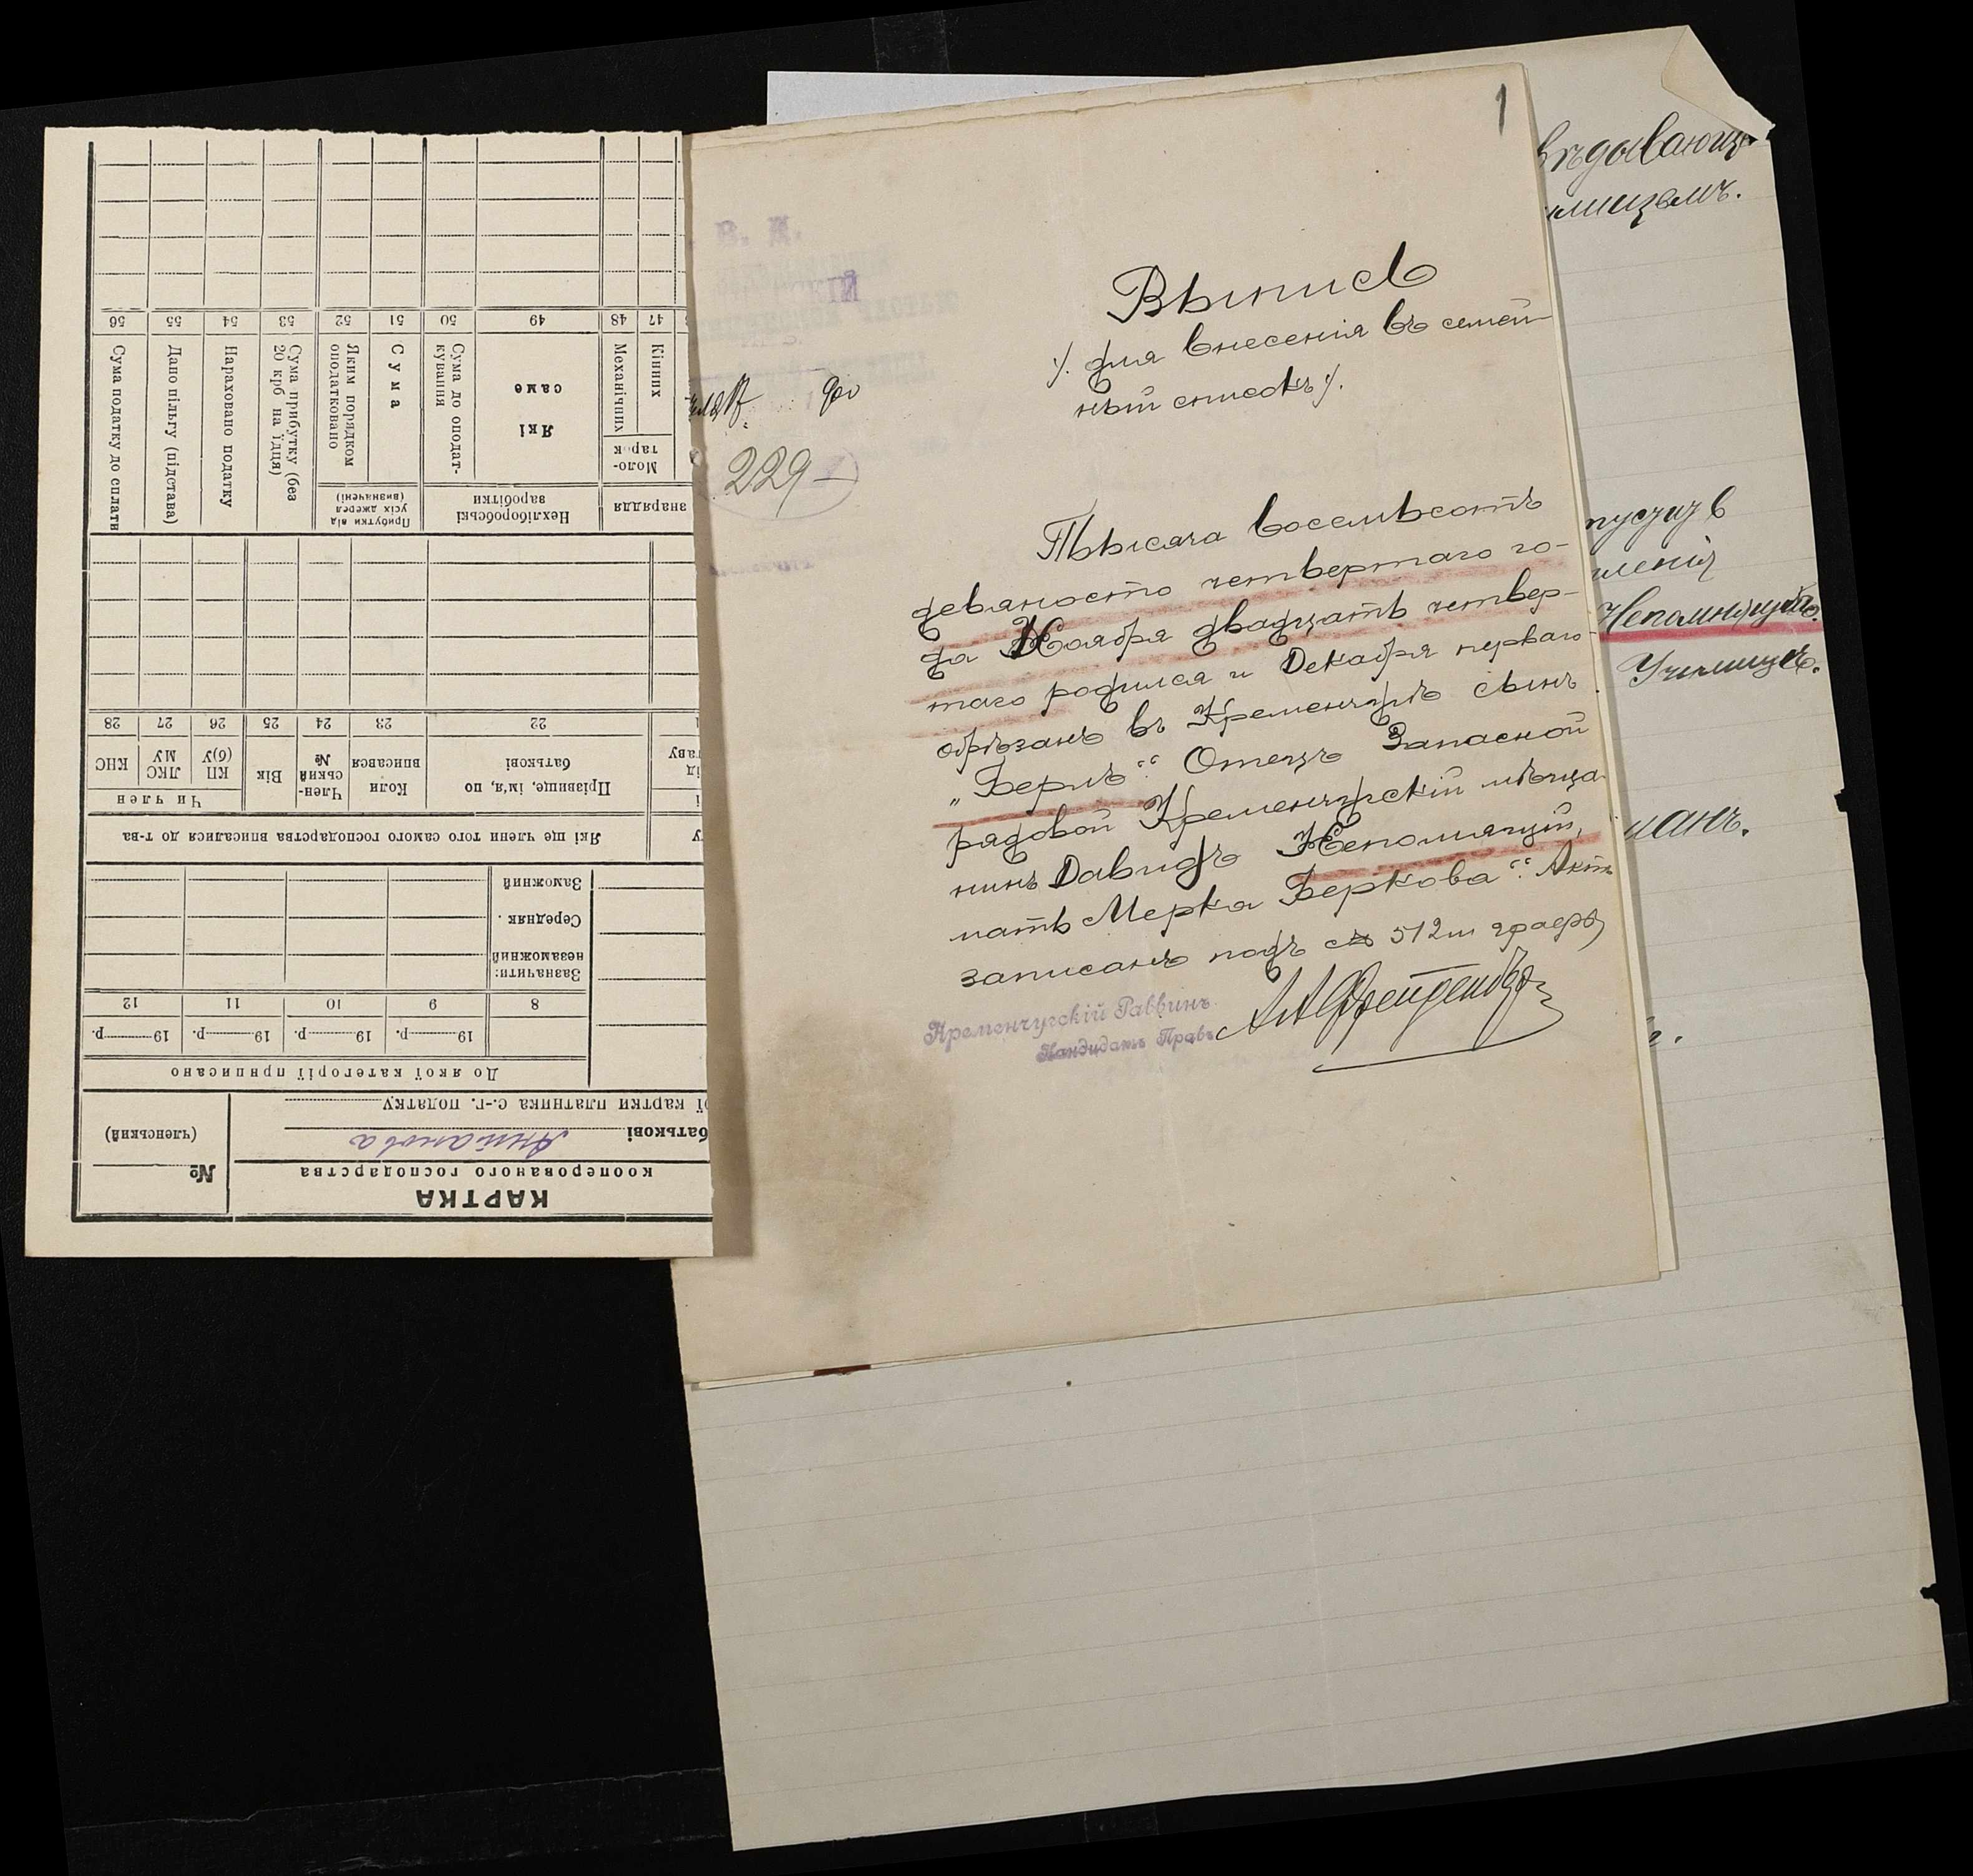 1
Выпись
/. для внесенія въ семей-
ный списокъ /.
229
Тысяча восемьсотъ
девяносто четвертаго го-
да Ноября двадцать четвер-
таго родился и Декабря перваго
обрѣзанъ въ Кременчугѣ сынъ
„Берлъ“ Отецъ Запасной
рядовой Кременчугскій мѣща-
нинъ Давидъ Непомнящій,
мать Мерка Беркова“. Актъ
записанъ подъ 512м
Кременчугскій Раввинъ
Кандидатъ Правъ
Непомнящій
Училищѣ.
КАРТКА
кооперованого господарства
№
(членський)
батькові
Антанова
ої картки платника с.-г. податку
До якої категорії приписано
19 р. 19 р. 19 р. 19 р.
8 9 10 11 12
Зазначити:
незаможний
Середняк
Заможний
Які ще члени того самого господарства вписалися до т-ва
Прізвище, ім'я, по батькові
Коли вписався
Член-ський №
Вік
Чи член
КП (б)У
ЛКС МУ
КНС
22 23 24 25 26 27 28
знаряддя
Моло-тарок
Кінних
Механічних
Нехліборобські заробітки
Які саме
Сума до оподат-кування
Прибутки від усіх джерел (визначені)
Сума
Яким порядком оподатковано
Сума прибутку (без 20 крб на їдця)
Нараховано податку
Дано пільгу (підстава)
Сума податку до сплати
47 48 49 50 51 52 53 54 55 56